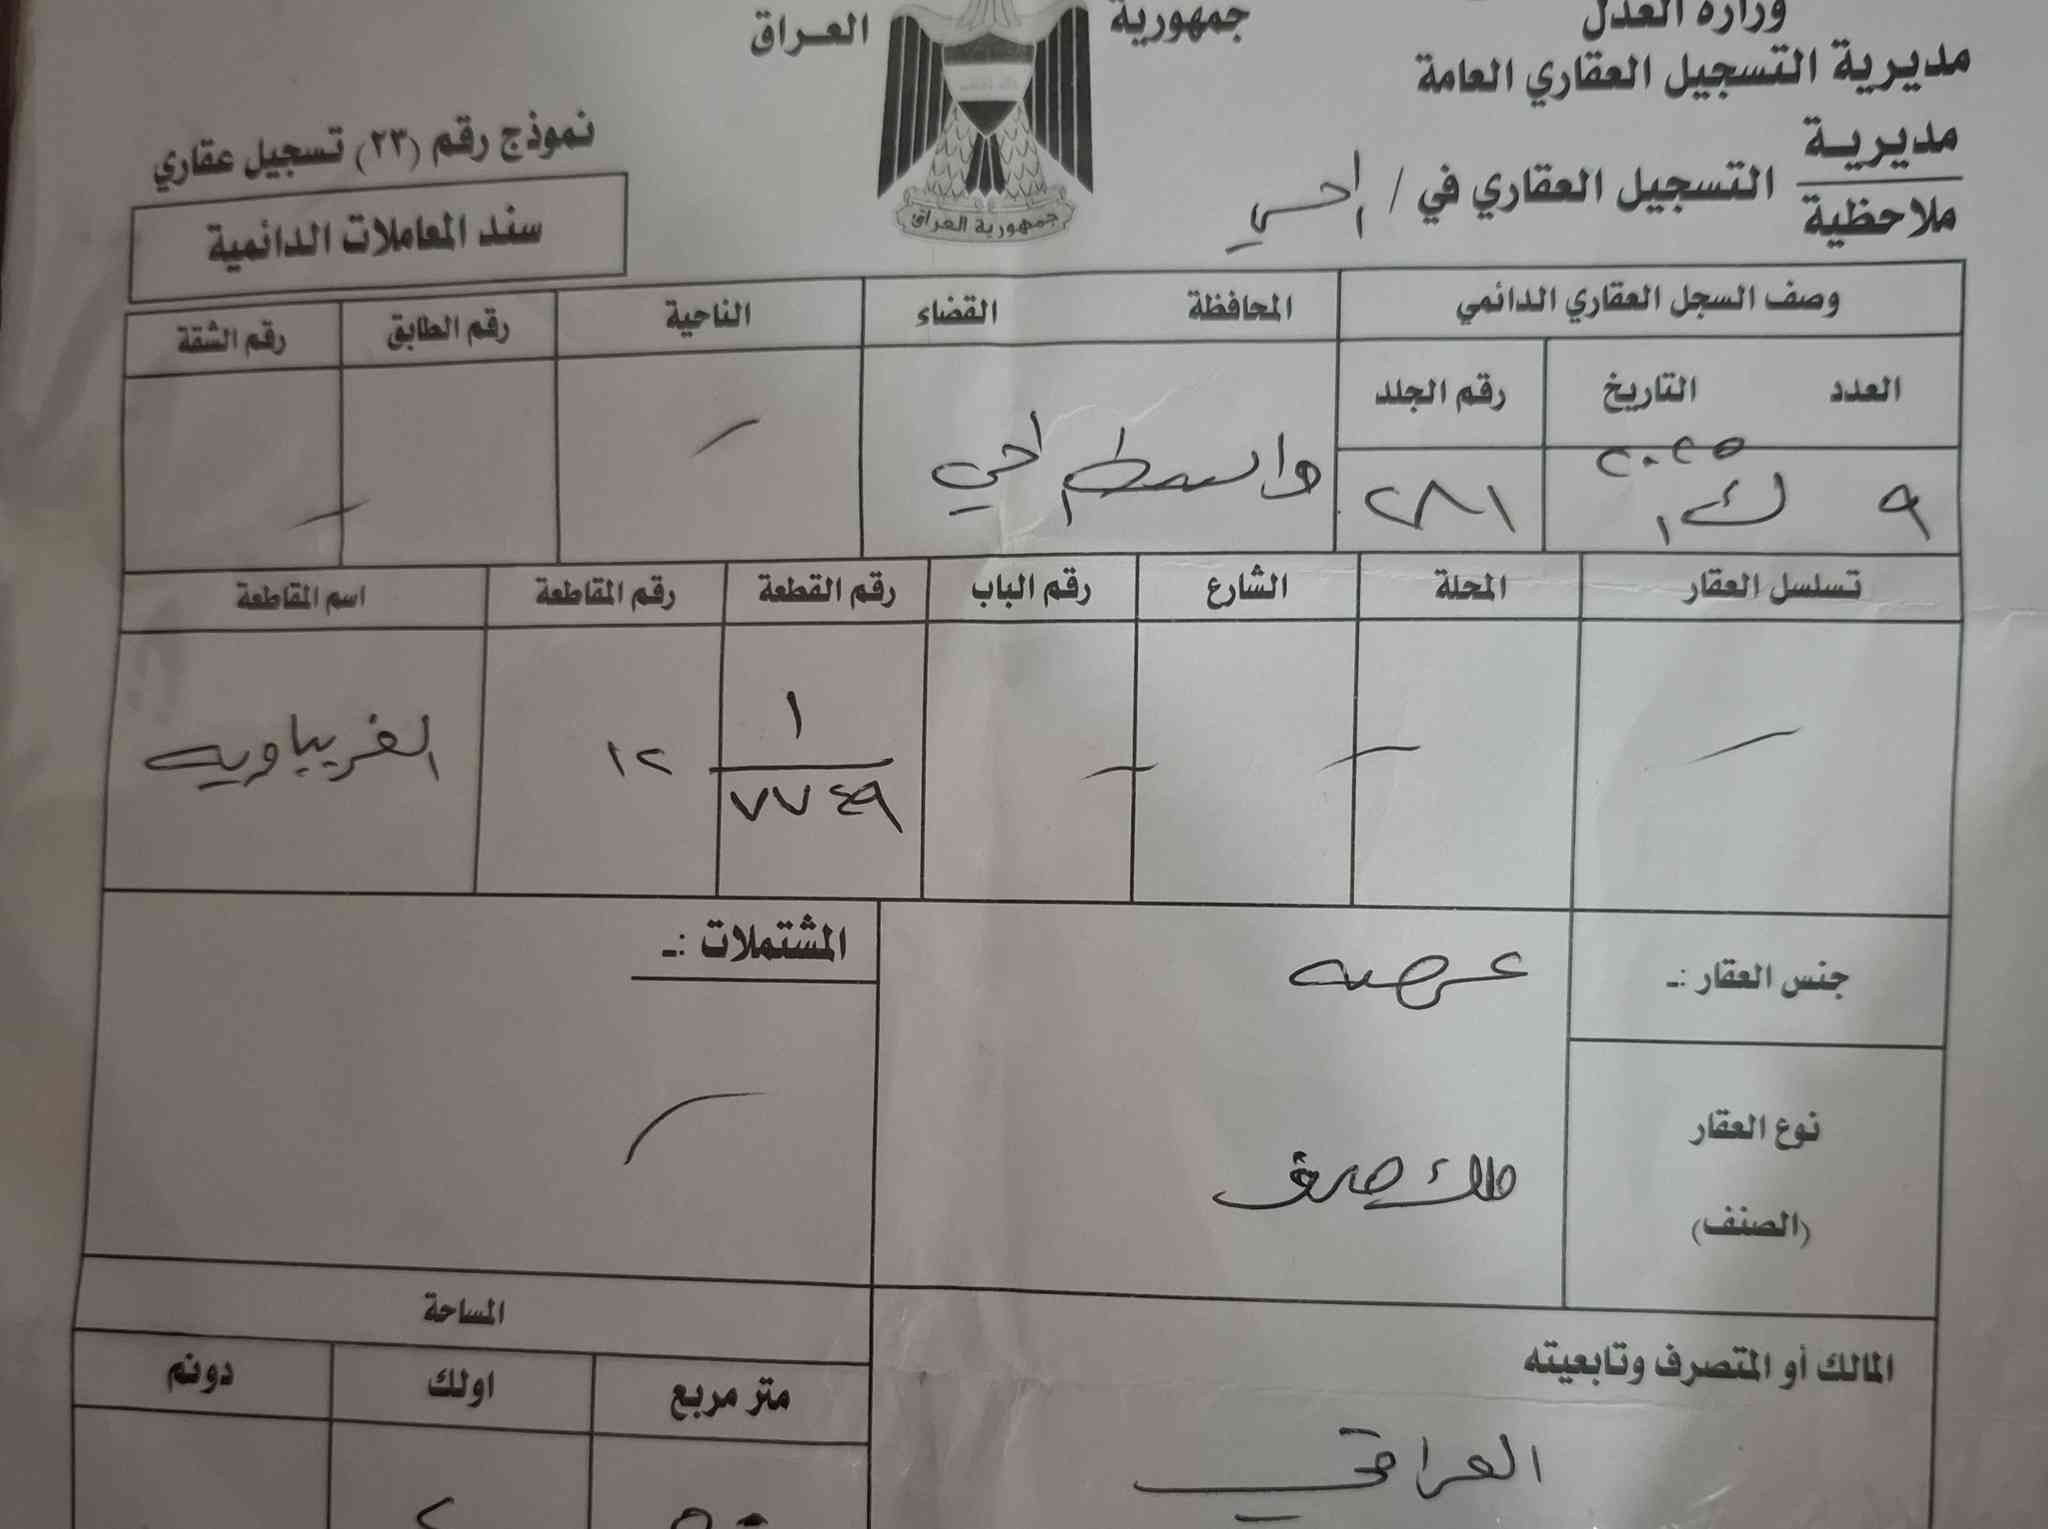 جمهورية العراق
وزارة العدل
مديرية التسجيل العقاري العامة
مديرية
ملاحظية
التسجيل العقاري في / الحي
نموذج رقم (٢٣) تسجيل عقاري
سند المعاملات الدائمية
جمهورية العراق
وصف السجل العقاري الدائمي
المحافظة القضاء الناحية رقم الطابق رقم الشقة
العدد التاريخ رقم الجلد
٩ ك١ ٢٠٢٥ ٢٨١ واسط / الحي
تسلسل العقار المحلة الشارع رقم الباب رقم القطعة رقم المقاطعة اسم المقاطعة
١
٧٧٤٩
١٢
جنس العقار :ـ عرصه
المشتملات :ـ
نوع العقار
(الصنف)
ملك صرف
المساحة
المالك أو المتصرف وتابعيته
متر مربع اولك دونم
العراقي